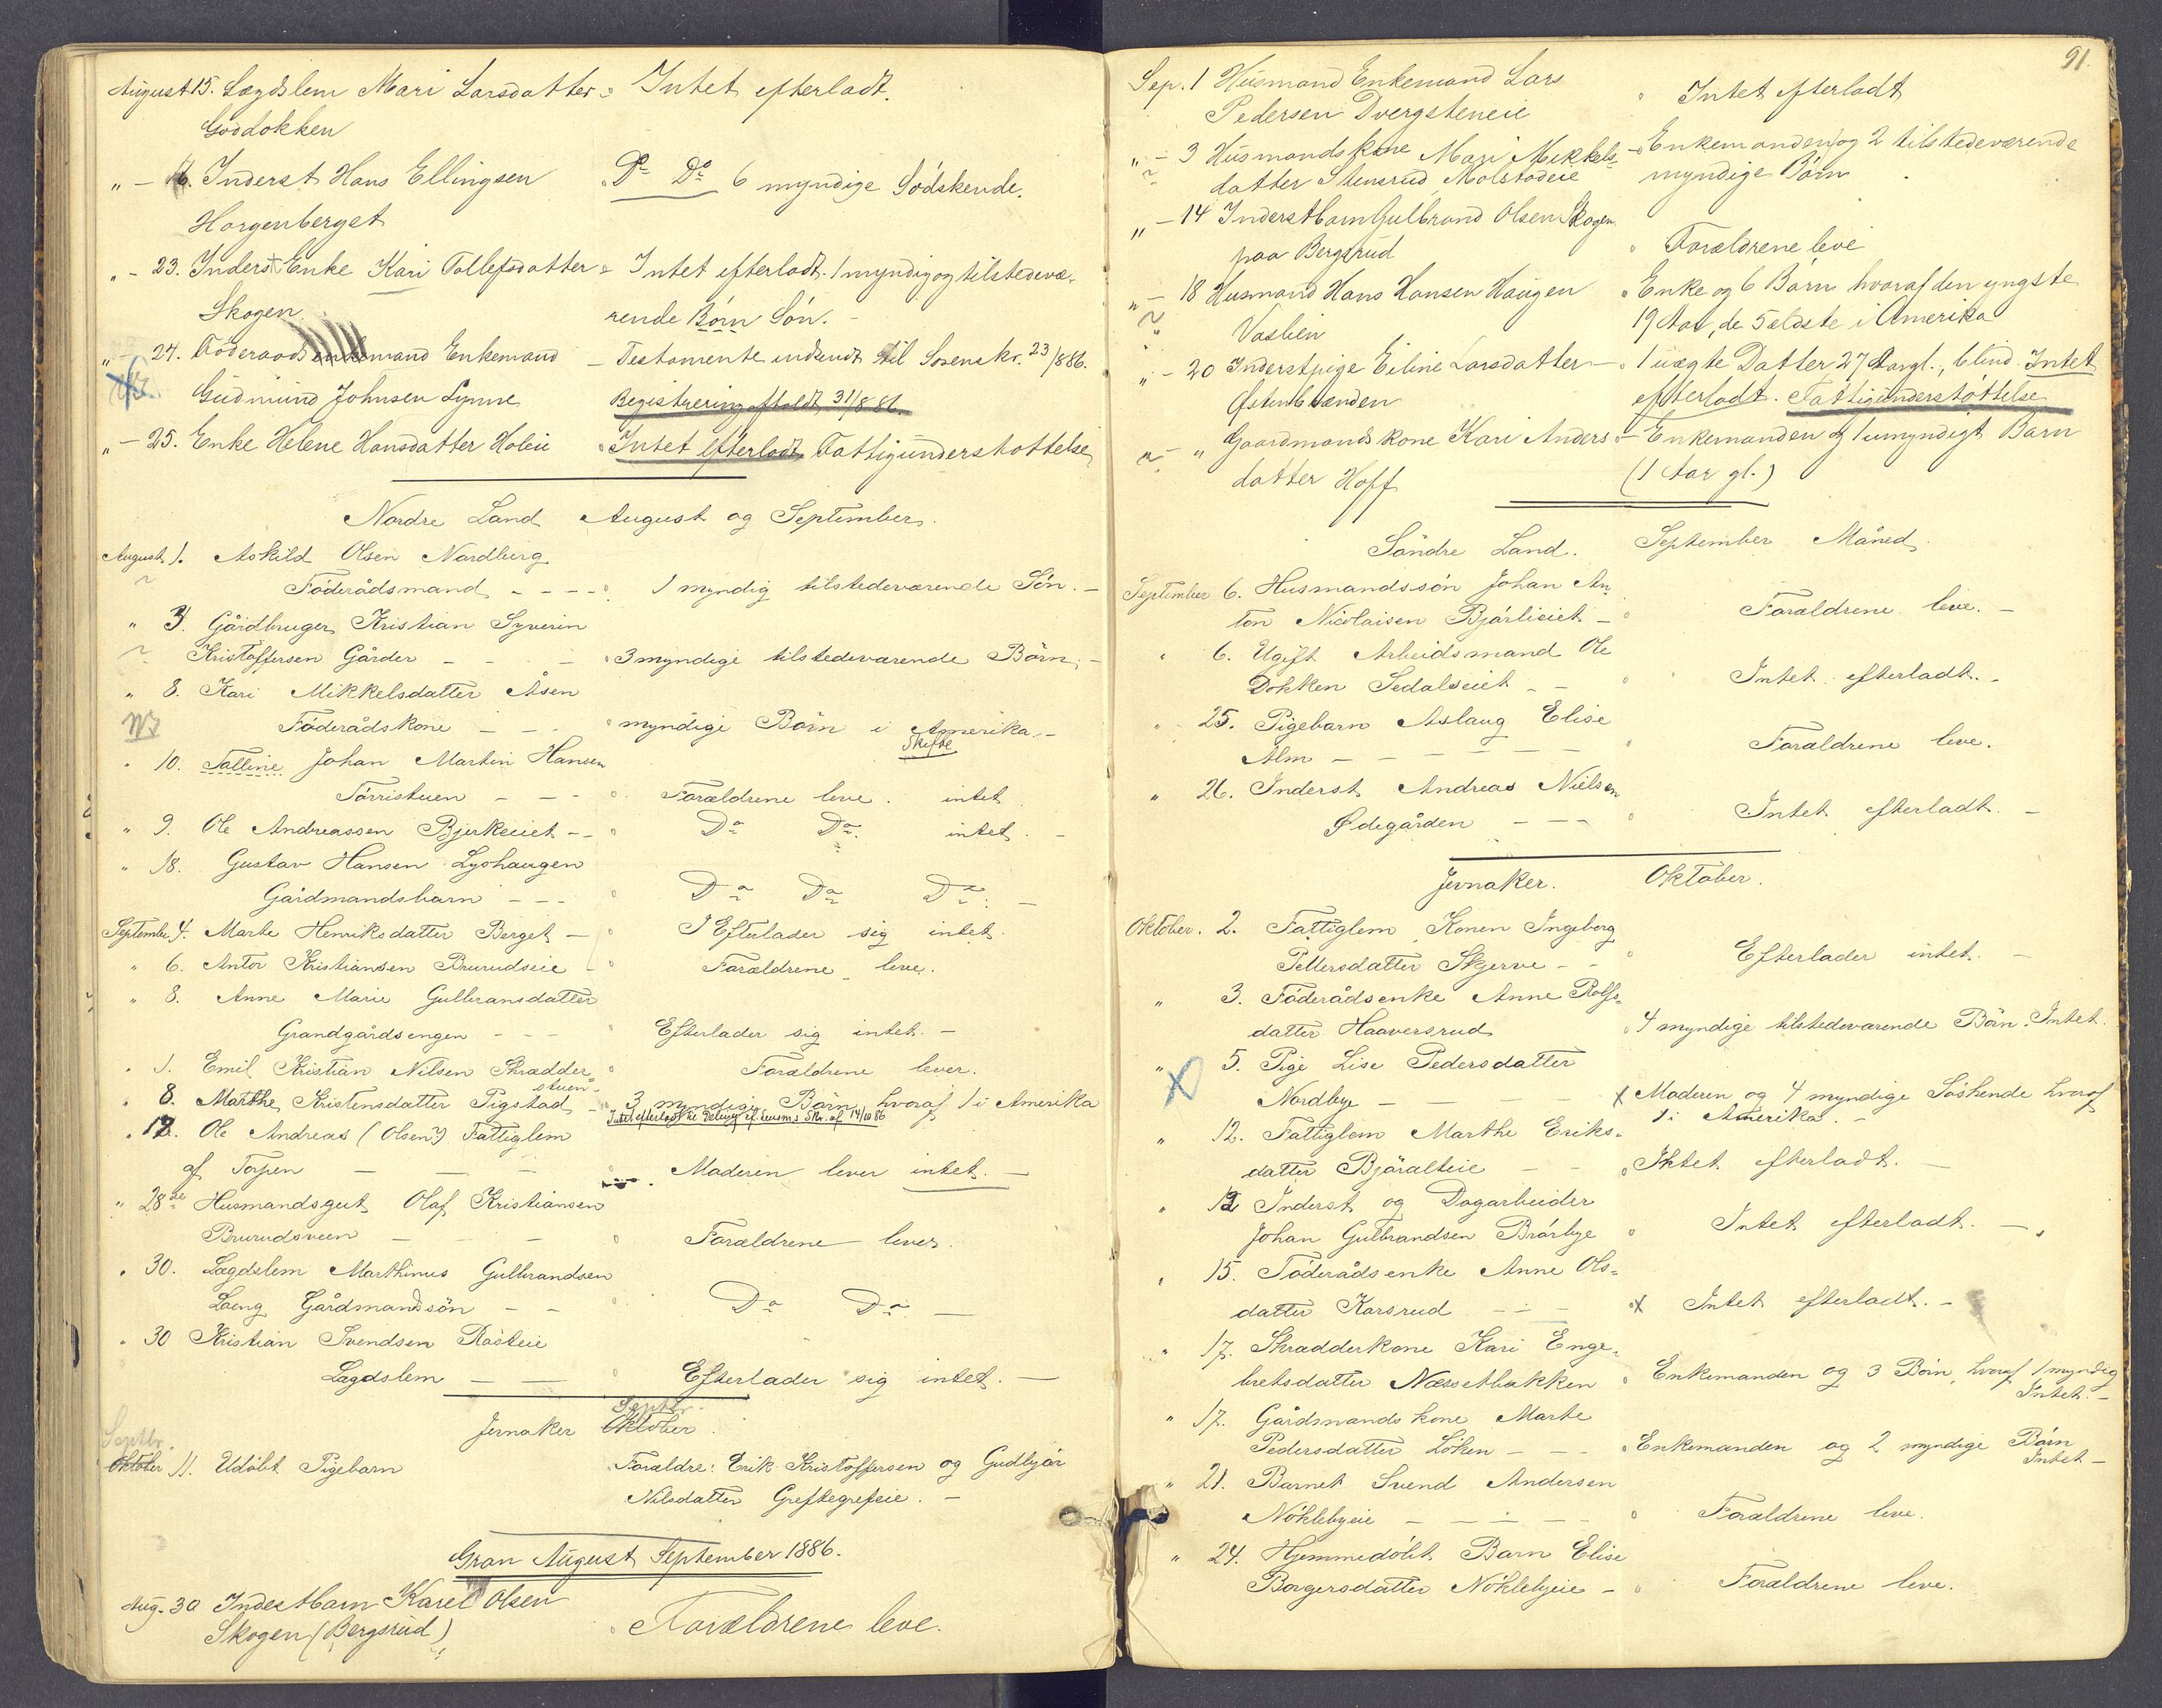 August 15. Lægdslem Mari Larsdatter Intet efterladt.
Goddokken
" - 16. Inderst Hans Ellingsen Do Do 6 myndige Södskende.
Horgenberget
" - 23. Inderst Enke Kari Tollefsdatter Intet efterladt. 1 myndig og tilstedevæ-
Skogen rende Börn Sön. -
" - 24. Föderaads enkemand Enkemand - Testamente indsendt til Sorenskr. 23/8 86.
Gudmund Johnsen Lynne Registrering afholdt 31/8 86.
" - 25. Enke Helene Hansdatter Holeie Intet efterladt Fattigunderstöttelse
Nordre Land August og September.
August 1. Askild Olsen Nordberg
Föderådsmand - - - - 1 myndig tilstedeværende Sön. -
" 3. Gårdbruger Kristian Syverin
Kristoffersen Gårder - - - 3 myndige tilstedeværende Börn, -
" 8. Kari Mikkelsdatter Åsen
Föderådskone - - - myndige Börn i Amerika. -
Skifte
" 10. Talline Johan Martin Hansen
Törristuen - - - Forældrene leve. intet
" 9. Ole Andreassen Bjerkeeiet - - Do Do. intet. -
" 18. Gustav Hansen Lyshaugen
Gårdmandsbarn - - - Do Do Do. -
September 4. Marte Henriksdatter Berget - Efterlader sig intet.
" 6. Anton Kristiansen Brurudseie - Forældrene leve.
" 8. Anne Marie Gulbransdatter
Grandgårdsengen - - - Efterlader sig intet. -
" 1. Emil Kristian Nilsen Skrædder Forældrene lever.
stuen
" 8. Marthe Kristensdatter Pigstad - 3 myndige Börn hvoraf 1 i Amerika
Intet efterladt
" 12. Ole Andreas (Olsen?) Fattiglem
af Torpen - - - Moderen lever intet. -
" 28de Husmandsgut Olaf Kristiansen
Brurudsveen - - - Forældrene lever.
" 30. Lægdslem Marthinus Gulbrandsen
Loeng Gårdmandsön - - Do Do -
" 30 Kristian Svendsen Rösteie
Lægdslem - - Efterlader sig intet. -
Septbr.
Jevnaker Oktober.
Septbr.
Oktober 11. Udöbt Pigebarn Forældre: Erik Kristoffersen og Gudbjör
Nilsdatter Greftegrefeie. -
Gran August September 1886.
Aug. 30 Inderstbarn Karel Olsen
Skogen (Bergsrud) Forældrene leve.
91.
Sep. 1 Husmand Enkemand Lars
Pedersen Dvergsteneie Intet efterladt
" - 3 Husmandskone Mari Mikkels- Enkemanden og 2 tilstedeværende
datter Stensrud Molstadeie myndige Börn
" - 14 Inderstbarn Gulbrand Olsen Skogen
paa Bergsrud Forældrene leve
" - 18 Husmand Hans Hansen Haugen Enke og 6 Börn hvoraf den yngste
Vaslien 19 Aar, de 5 ældste i Amerika
" - 20 Inderstpige Eline Larsdatter - 1 uægte Datter 27 Aar gl., blind. Intet
Östenbrænden efterladt. Fattigunderstöttelse
" - " Gaardmandskone Kari Anders - Enkemanden og 1 umyndigt Barn
datter Hoff (1 Aar gl.)
Söndre Land. September Måned.
September 6. Husmandssön Johan An-
ton Nicolaisen Bjórlieiet - Forældrene leve. -
" 6. Ugift Arbeidsmand Ole
Dokken Sedalseiet - - Intet efterladt. -
" 25. Pigebarn Aslaug Elise
Alm - - - - - Forældrene leve.
" 26. Inderst Andreas Nielsen
Ødegården - - - Intet efterladt. -
Jevnaker. Oktober.
Oktober. 2. Fattiglem Konen Ingeborg
Pettersdatter Skjerve - - Efterlader intet. -
" 3. Föderådsenke Anne Rolfs-
datter Haaversrud 4 myndige tilstedeværende Börn. Intet.
" 5. Pige Lise Pedersdatter
Nordbye - - - - x Moderen og 4 myndige Söskende hvoraf
1 i Amerika. -
" 12. Fattiglem Marthe Eriks-
datter Björalteie - - Intet efterladt. -
" 12 Inderst og Dagarbeider
Johan Gulbrandsen Brörbye Intet efterladt. -
" 15. Föderådsenke Anne Ols-
datter Karsrud - - - x Intet efterladt. -
" 17. Skrædderkone Kari Enge-
bretsdatter Næssetbakken Enkemanden og 3 Börn, hvoraf 1 myndig
Intet. -
" 17. Gårdmandskone Marte
Pedersdatter Löken - - - Enkemanden og 2 myndige Börn
Intet -
" 21. Barnet Svend Andersen
Nöklebyeie - - - - - Forældrene leve.
" 24. Hjemmedöbt Barn Elise
Borgersdatter Nöklebyeie - Forældrene leve.